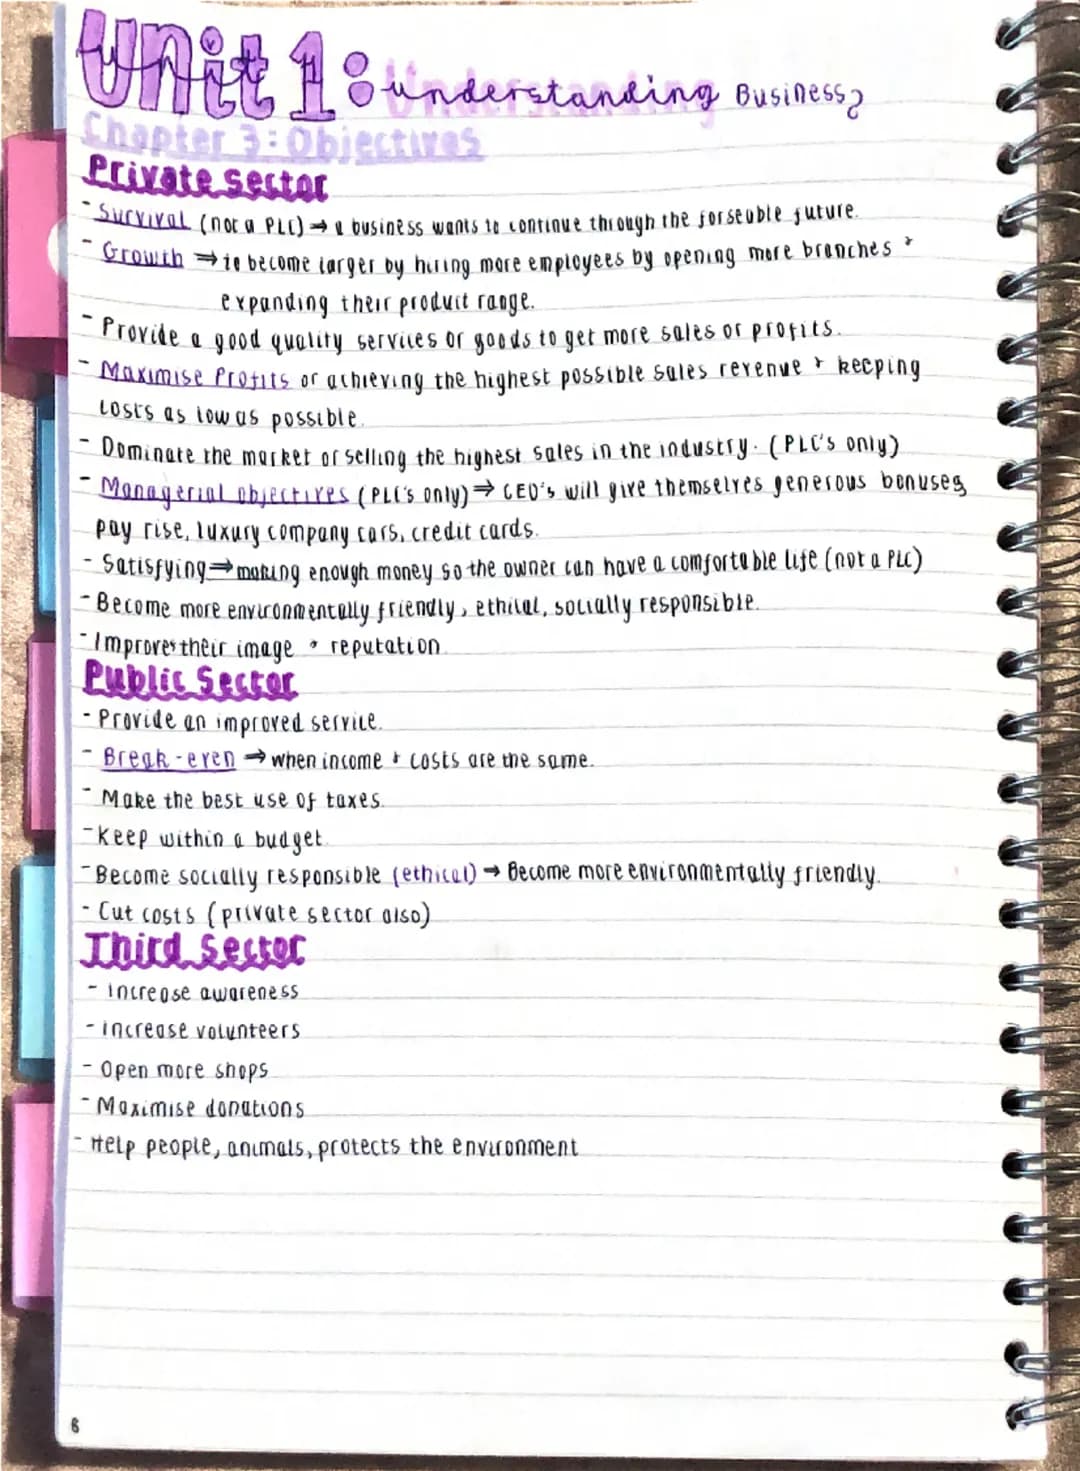 Unit 1: Understanding Business?
Chapter 3: Objectives
Private sector
- Survival (not a PLC) → a business wants to continue through the forseuble future.
- Growth → to become larger by hiring more employees by opening more branches +
expanding their product range.
- Provide a good quality services or goods to get more sales or profits.
- Maximise Profits or achieving the highest possible sales revenue + keeping
costs as low as possible.
- Dominate the market or selling the highest sales in the industry. (PLC's only)
- Managerial objectives (PLC's only) → CEO's will give themselves generous bonuses,
pay rise, luxury company cars, credit cards.
- Satisfying → making enough money so the owner can have a comfortable life (not a PLC)
- Become more environmentally friendly, ethical, socially responsible.
- Improves their image + reputation
Public Sector
- Provide an improved service.
- Break-even → when income + costs are the same.
- Make the best use of taxes.
- Keep within a budget.
- Become socially responsible (ethical) → Become more environmentally friendly.
- Cut costs (private sector also)
Third Sector
- increase awareness
- increase volunteers
- Open more shops
- Maximise donations
- Help people, animals, protects the environment
6